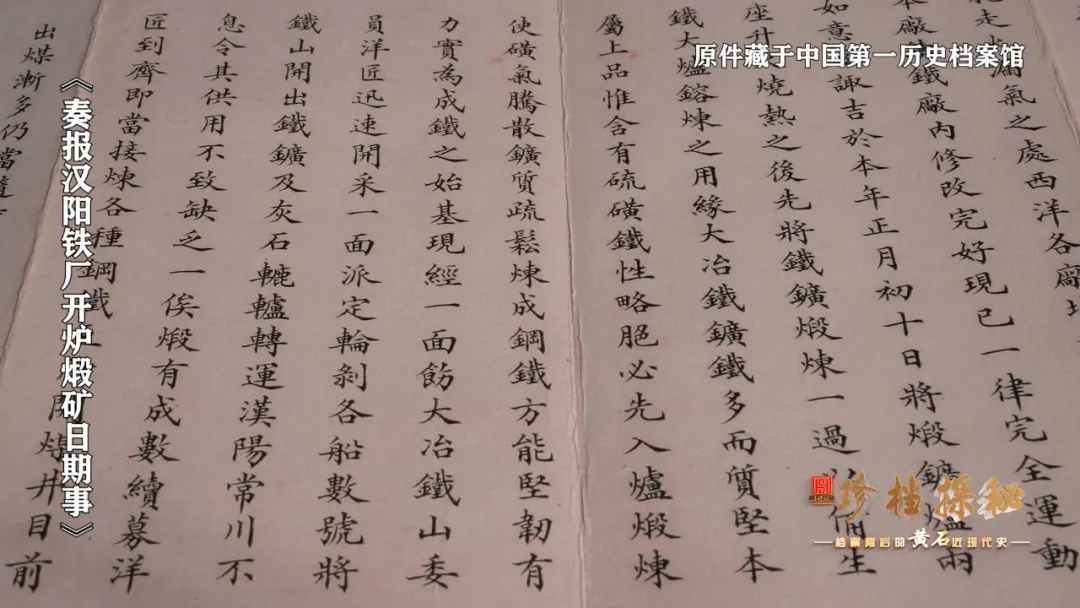 原件藏于中国第一历史档案馆
走漏氣之處西洋各廠
鐵廠內修改完好現已一律完全運動
如意諏吉於本年正月初十日將煅鑛爐兩
座升燒熱之後先將鐵鑛煅煉一過備生
鐵大爐鎔煉之用緣大冶鐵鑛鐵多而質堅本
屬上品惟含有硫磺鐵性略脆必先入爐煅煉
使磺氣騰散鑛質疏鬆煉成鋼鐵方能堅韌有
力實為成鐵之始基現經一面飭大冶鐵山委
員洋匠迅速開采一面派定輪剝各船數號將
鐵山開出鐵鑛及灰石轆轤轉運漢陽常川不
息令其供用不致缺乏一俟煅有成數續募洋
匠到齊即當接煉各種鋼鐵
井目前
出煤漸多仍當
《奏报汉阳铁厂开炉煅矿日期事》
珍档探秘
档案背后的黄石近现代史